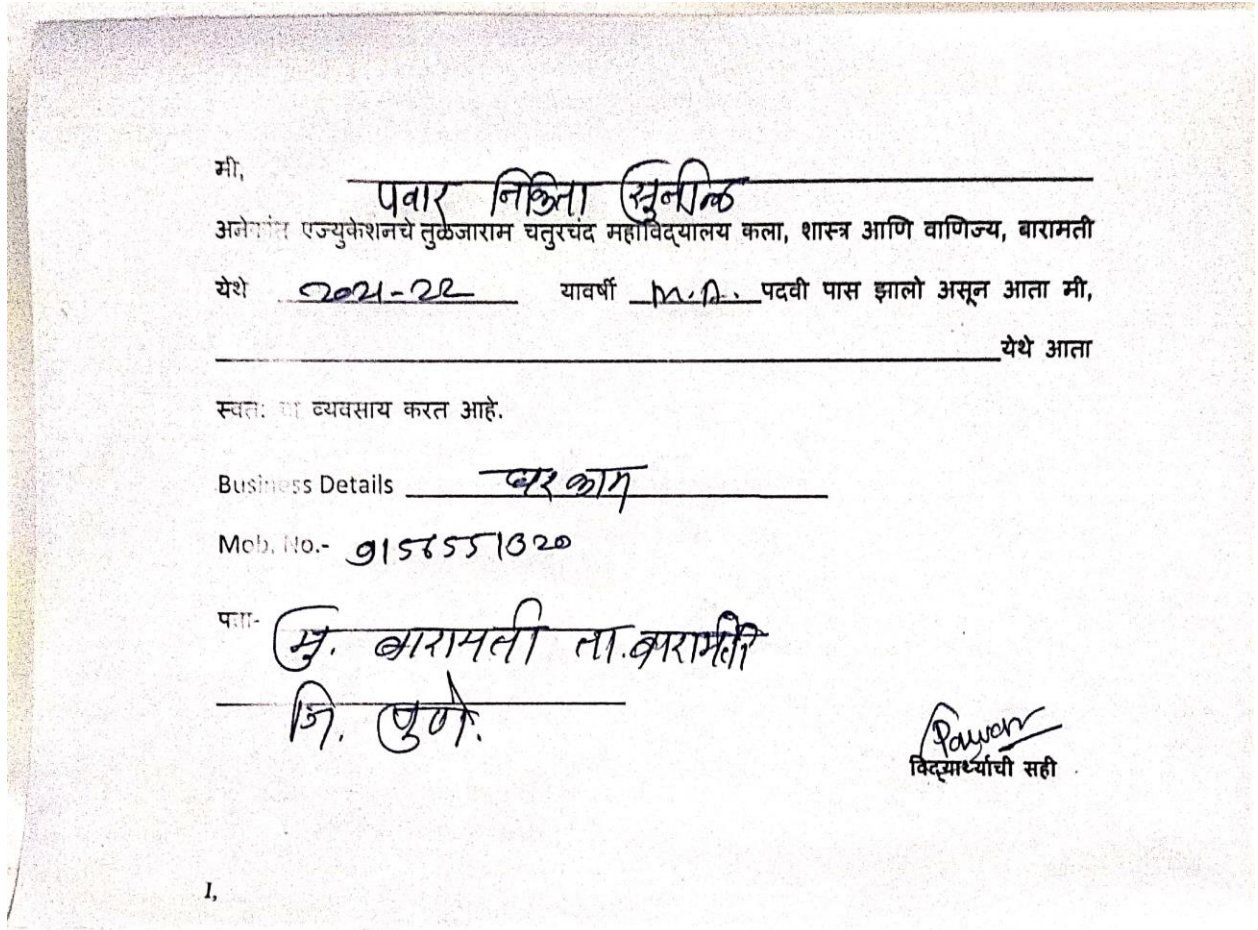 मी,
पवार निकिता सुनील
अनेकांत एज्युकेशनचे तुळजाराम चतुरचंद महाविद्यालय कला, शास्त्र आणि वाणिज्य, बारामती
येथे 2021-22 यावर्षी M.A. पदवी पास झालो असून आता मी,
येथे आता
स्वतः चा व्यवसाय करत आहे.
Business Details घरकाम
Mob. No.- 9156551320
पत्ता- मु. बारामती ता. बारामती
जि. पुणे.
Pawar
विद्यार्थ्याची सही
I,